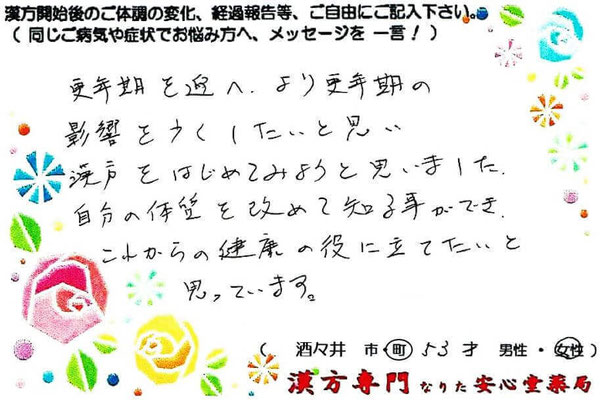 漢方開始後のご体調の変化、経過報告等、ご自由にご記入下さい。
( 同じご病気や症状でお悩み方へ、メッセージを 一言! )
更年期を迎へ、より更年期の
影響を少くしたいと思い
漢方をはじめてみようと思いました。
自分の体質を改めて知る事ができ、
これからの健康の役に立てたいと
思っています。
( 酒々井 市・町 53才 男性・女性 )
漢方専門 なりた 安心堂薬局